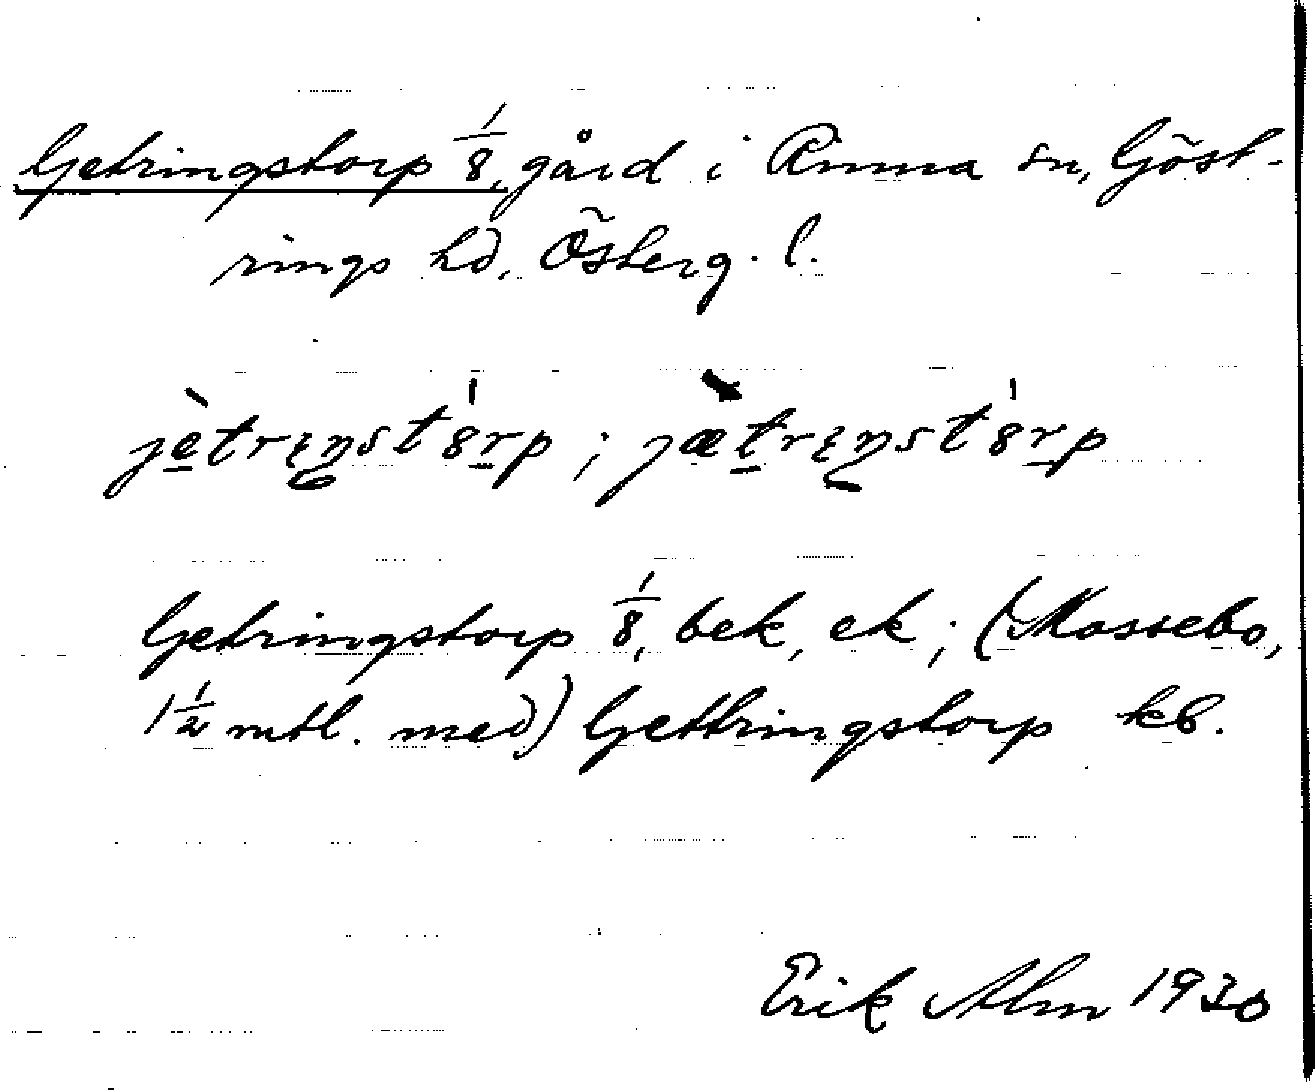 Getringstorp 1/8, gård i Rinna sn, Göst-
rings hd, Österg. l.
jètrɛŋst8́rp ; jæ̀trɛŋst8́rp
Getringstorp 1/8, bek, ek; (Mossebo,
1 1/2 mtl. med) Gettringstorp kb.
Erik Alm 1930